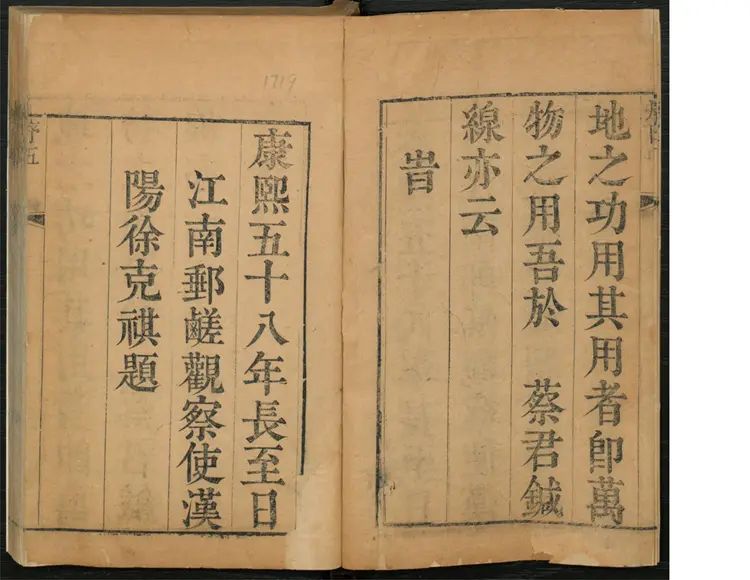 地之功用其用者卽萬
物之用吾於 蔡君鍼
線亦云
旹
1719
康熙五十八年長至日
江南郵鹺觀察使漢
陽徐克祺題
序五